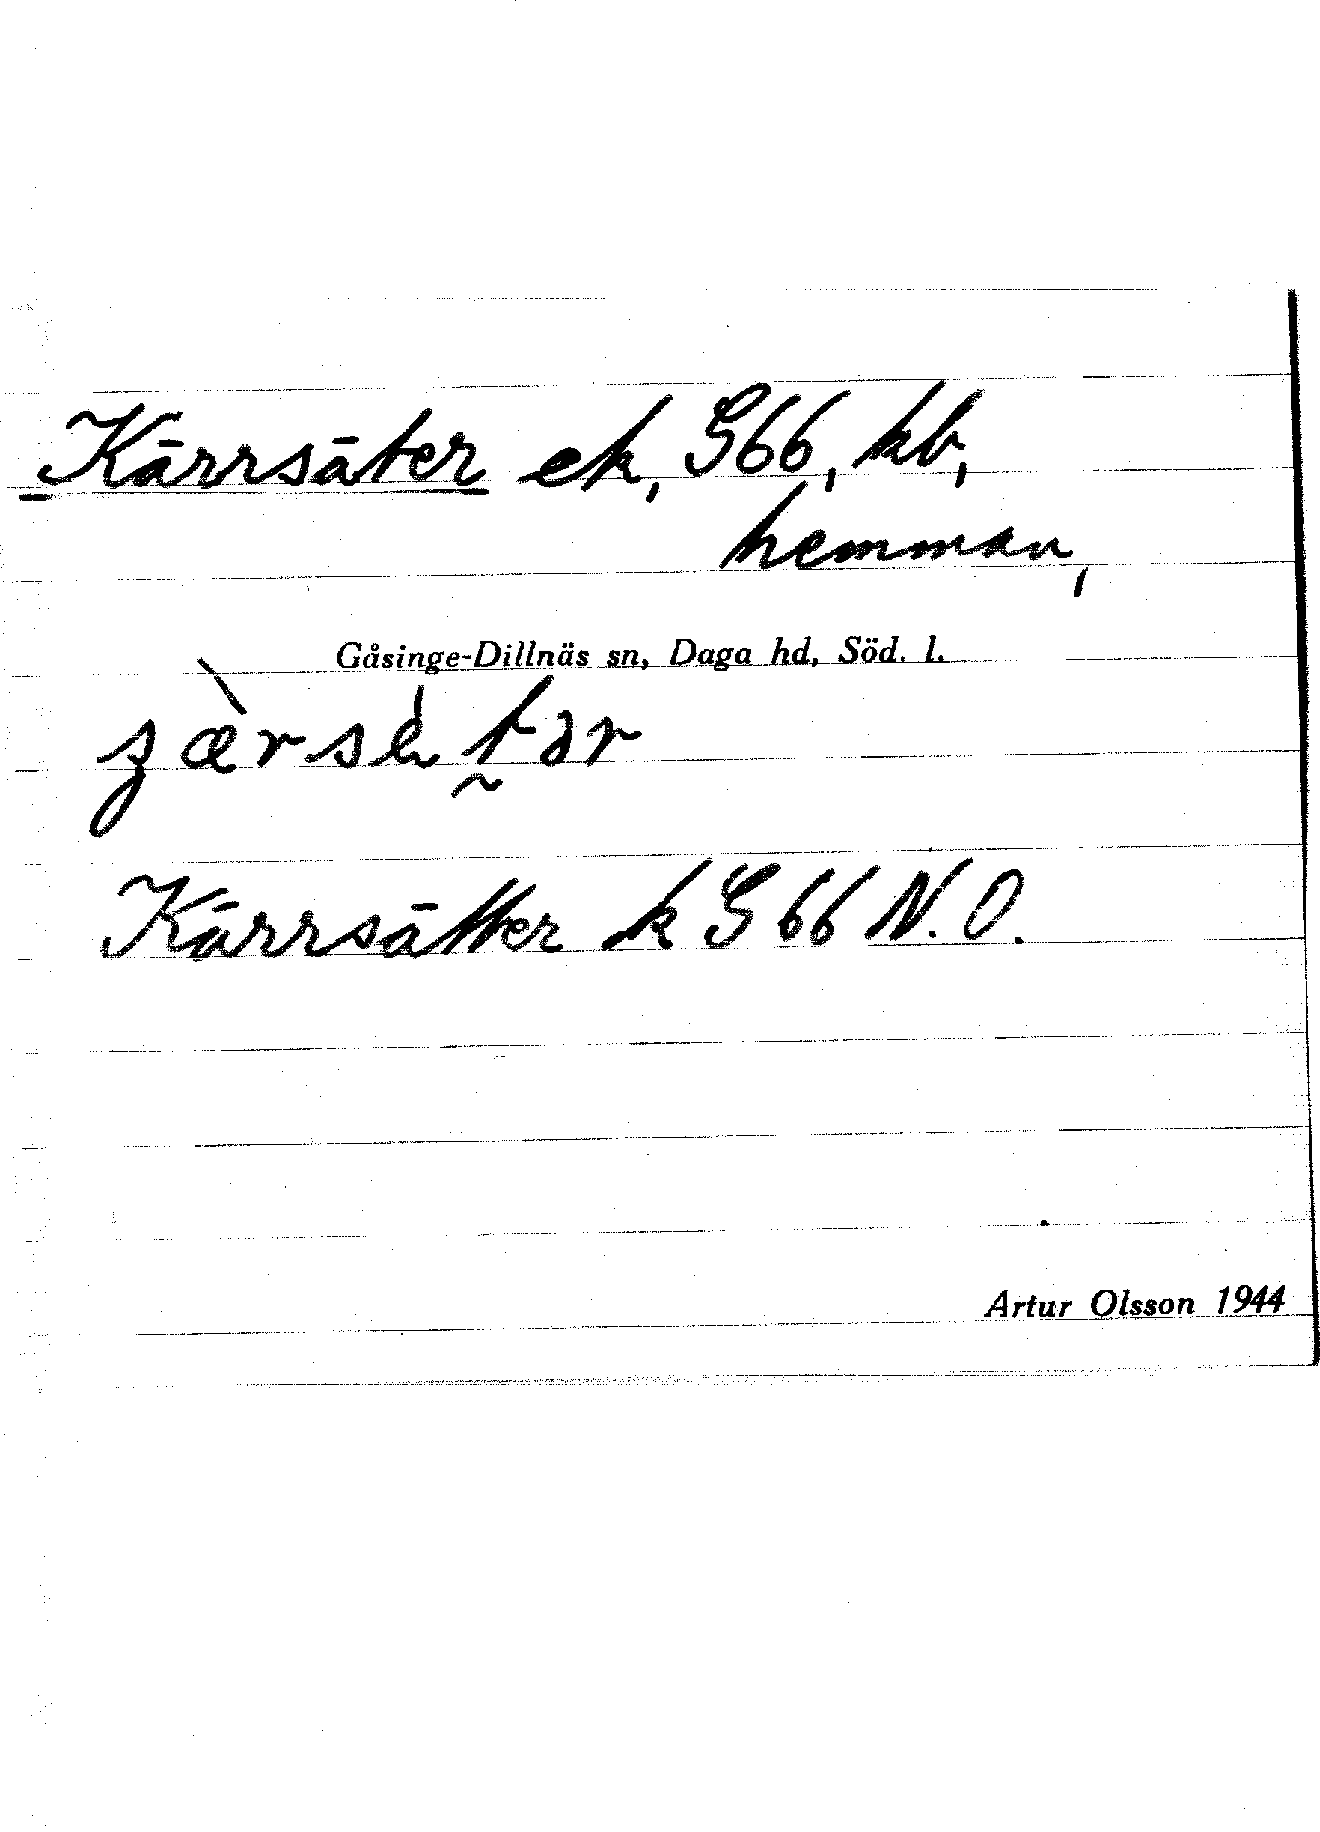 Kärrsäter ek, G66, kb,
hemman,
Gåsinge-Dillnäs sn, Daga hd, Söd. l.
Kärrsätter k G 66 N. O.
Artur Olsson 1944